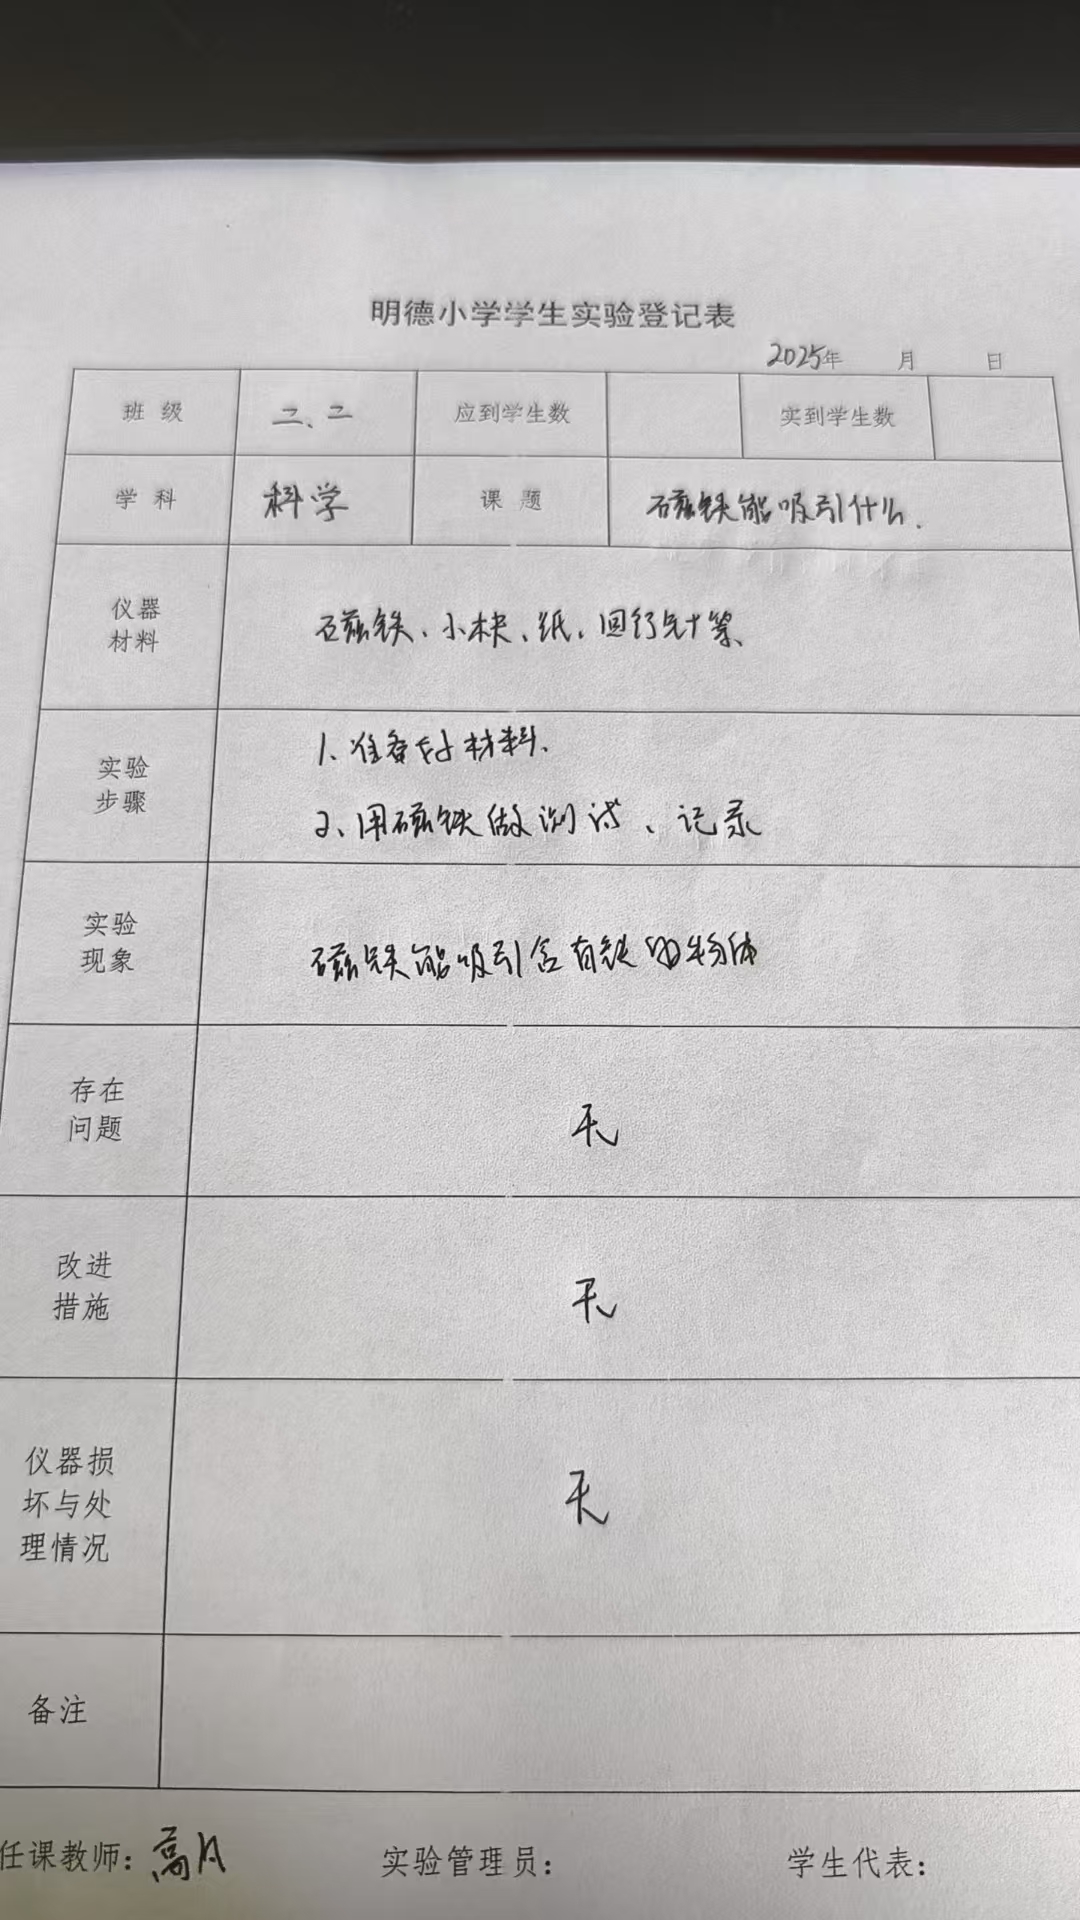 明德小学学生实验登记表
2025年 月 日
班级 二、二 应到学生数 实到学生数
学科 科学 课题 磁铁能吸引什么.
仪器材料 磁铁、小木块、纸、回形针等、
实验步骤 1、准备好材料、
2、用磁铁做测试、记录
实验现象 磁铁能吸引含有铁的物体
存在问题 无
改进措施 无
仪器损坏与处理情况 无
备注
任课教师：高 实验管理员： 学生代表：